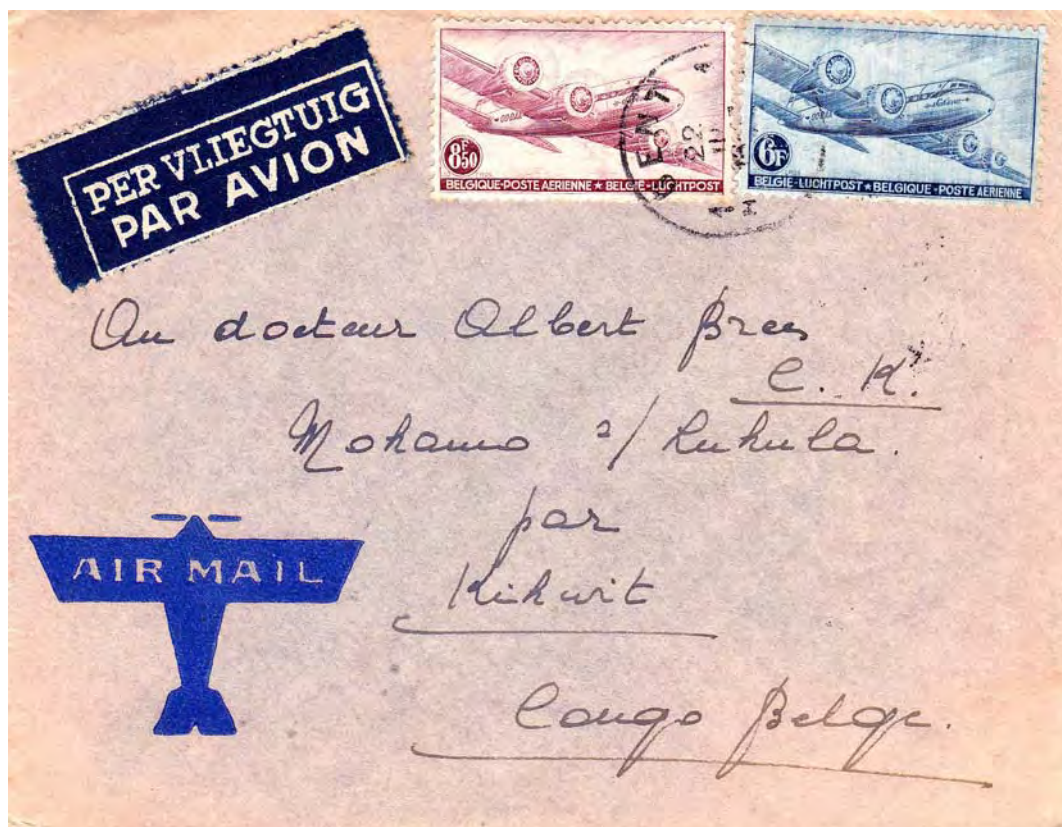 PER VLIEGTUIG
PAR AVION
8F50
BELGIQUE-POSTE AERIENNE ★ BELGIE-LUCHTPOST
6F
BELGIE-LUCHTPOST ★ BELGIQUE-POSTE AERIENNE
22
Au docteur Albert
C. K.
s/
par
Kikwit
Congo Belge.
AIR MAIL